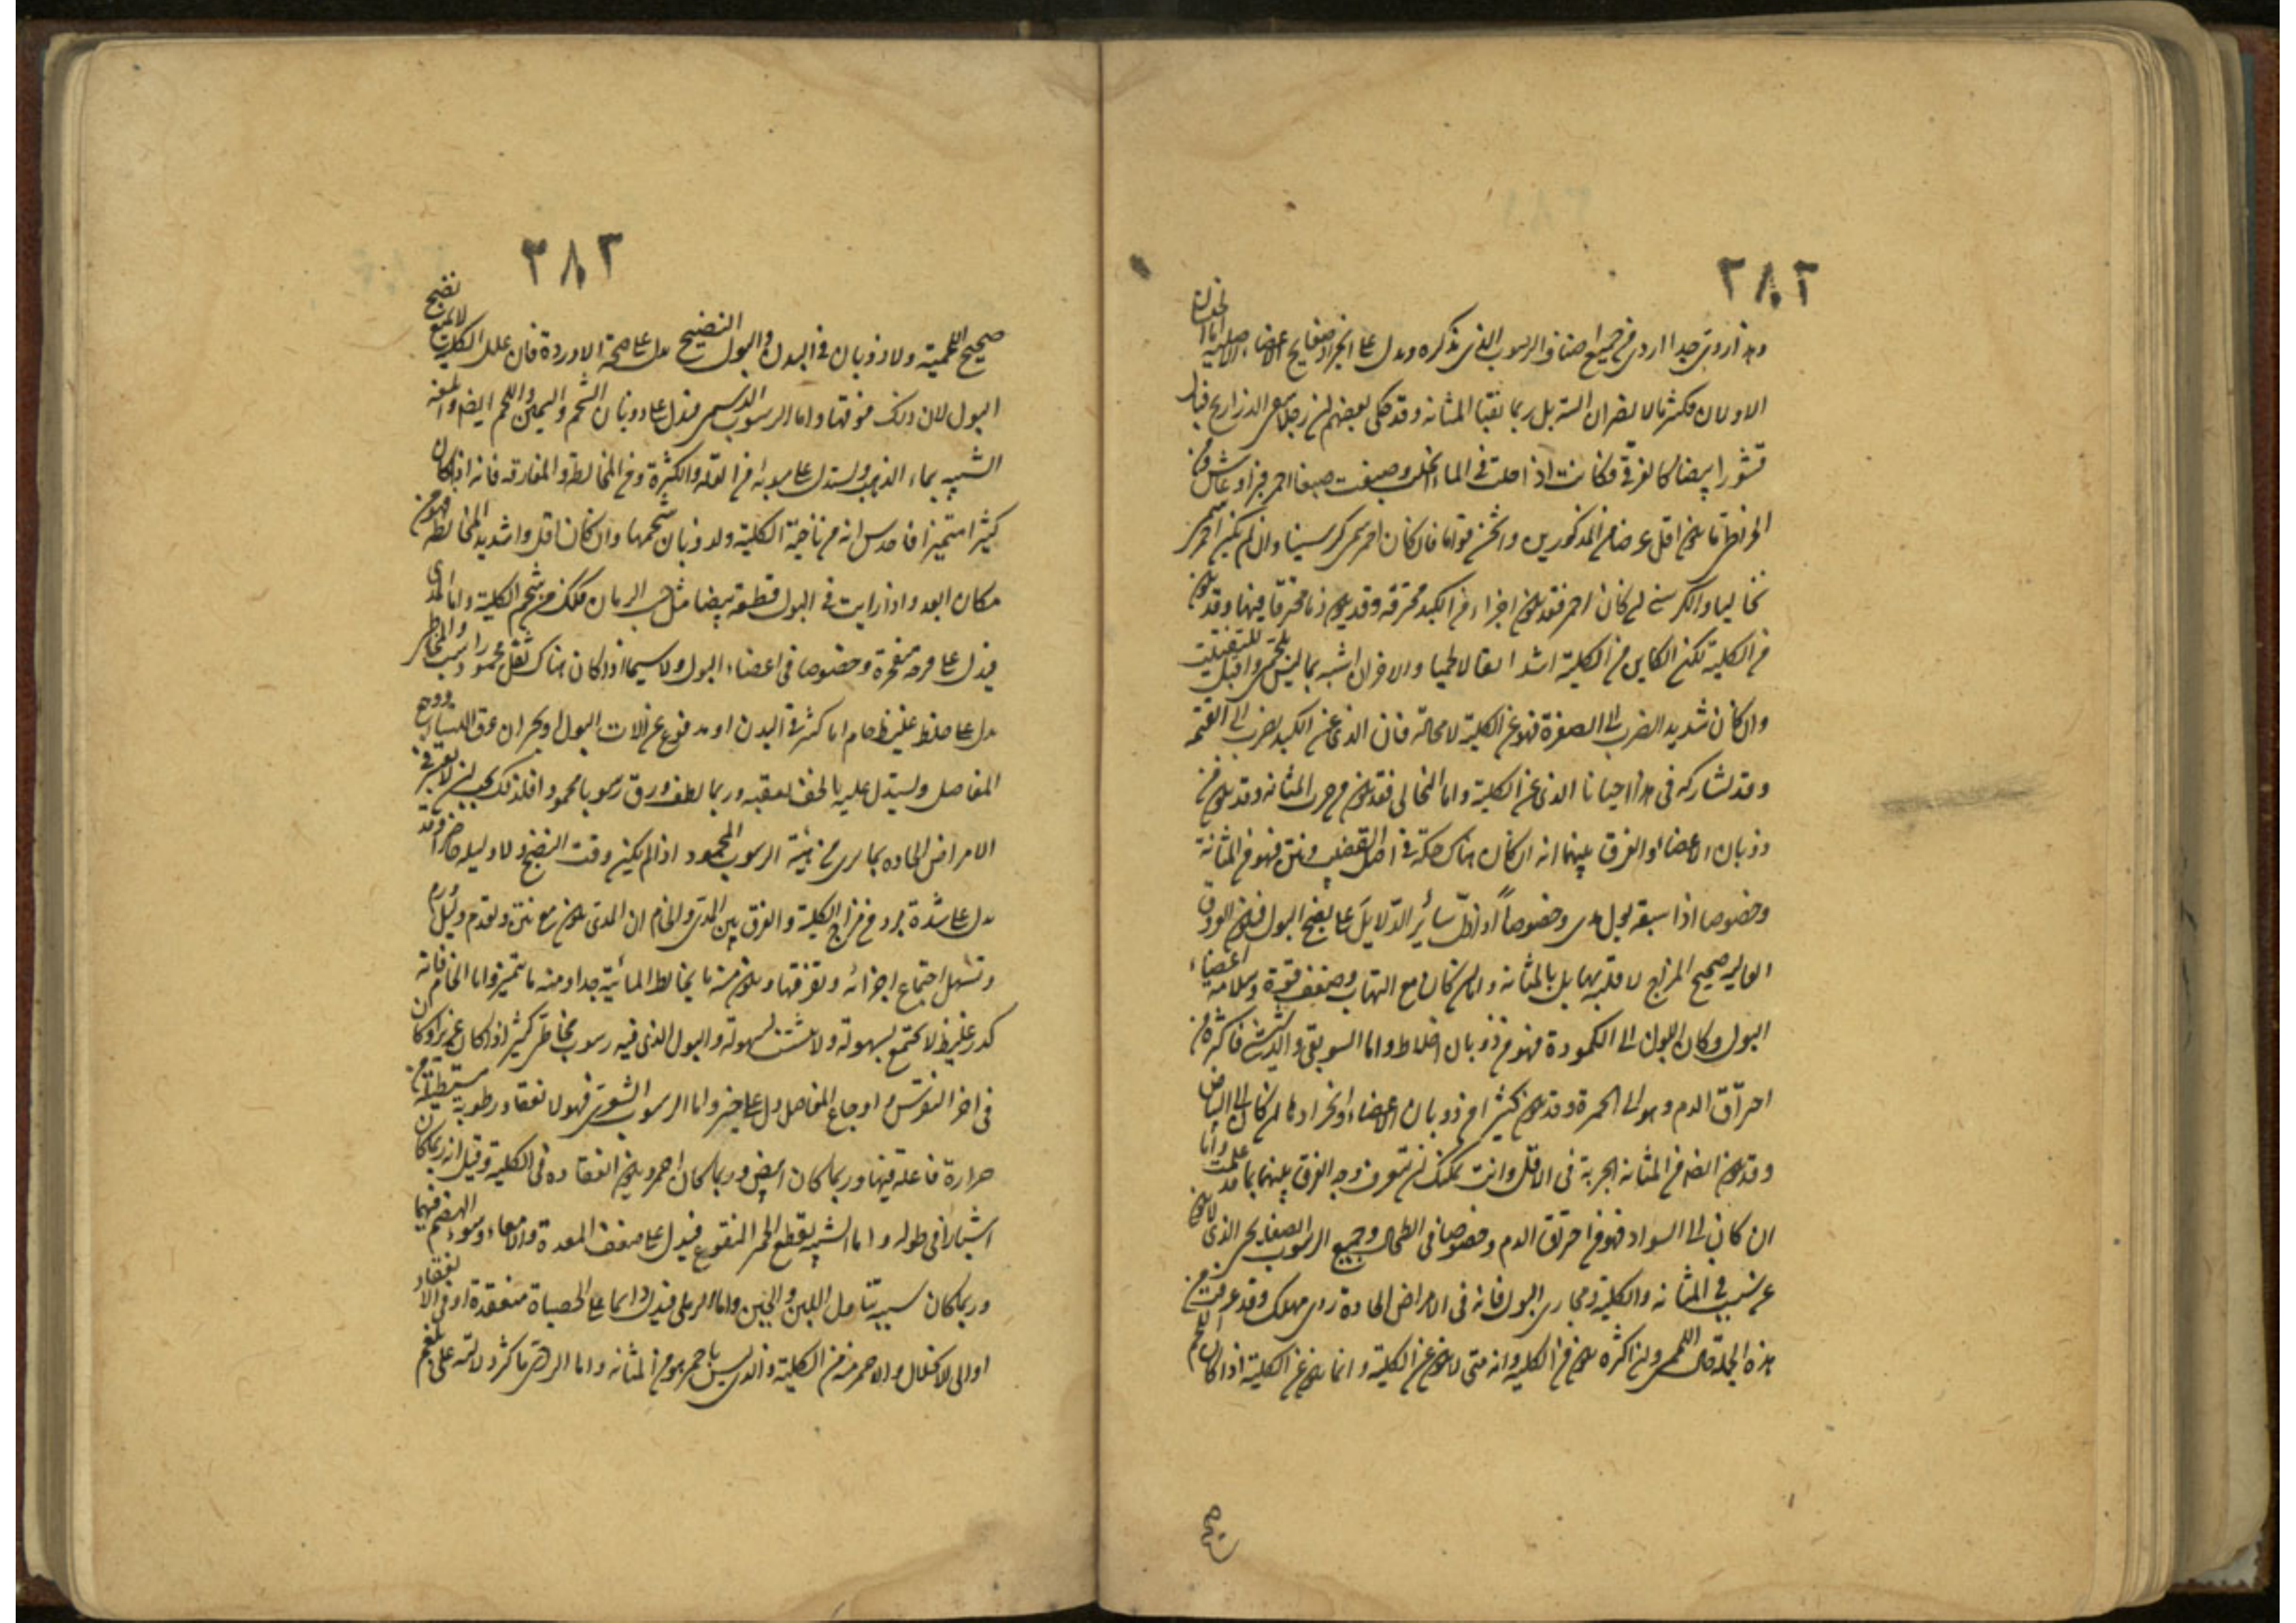 ٢٨٢
وهذا ردى جدا اردى من جميع اصناف الرسوب الذى نذكره ويدل على انجراد صفايح الاعضاء الاصلية اما اللذان
الاولان فكثيرا ما لا يضران البتة بل ربما نقيا المثانة وقد حكى بعضهم ان رجلا سقى الذراريح فبال
قشورا بيضا كالغرقى وكانت اذا حلت فى الماء انحلت وصبغت صبغا احمر فبرا وعاش ومن
الخراطى ما يكون اقل عرضا من المذكورين واثخن قواما فان كان احمر سمى كرسنيا وان لم يكن احمر سمى
نخاليا والكرسنى ان كان احمر فقد يكون اجزاء من الكبد محترقة وقد يكون دما محترقا فيها وقد يكون
من الكلية لكن الكاين من الكلية اشد اتصالا لحميا والاخران اشبه بما ليس بلحمى واقبل للتفتيت
وان كان شديد الضرب الى الصفرة فهو عن الكلية لا محالة فان الذى عن الكبد يضرب الى القتمة
وقد تشاركه فى هذا احيانا الذى عن الكلية واما النخالى فقد يكون من جرب المثانة وقد يكون من
ذوبان الاعضاء والفرق بينهما انه ان كان هناك حكة فى اصل القضيب ونتن فهو من المثانة
وخصوصا اذا سبقه بول مدى وخصوصاً اذا دلّ سائر الدلايل على نضج البول فيكون العروق
العالية صحيح المزاج لا قلبة بها بل بالمثانة واما ان كان مع التهاب وضعف قوة وسلامة اعضاء
البول وكان اللون الى الكمودة فهو من ذوبان اخلاط واما السويقى والدشيشى فاكثره من
احتراق الدم وهو الى الحمرة وقد يكون كثيرا من ذوبان الاعضاء وانجرادها ان كان الى البياض
وقد يكون ايضا من المثانة الجربة فى الاقل وانت يمكنك ان تتعرف وجه الفرق بينهما بما قد علمت واما
ان كان الى السواد فهو من احتراق الدم وخصوصا فى الطحال وجميع الرسوب الصفايحى الذى لا يكون
عن سبب فى المثانة والكلية ومجارى البول فانه فى الامراض الحادة ردى مهلك وقد عرفت من
هذه الجملة حال اللحمى وان اكثره يكون من الكلية وانه متى لا يكون عن الكلية وانما يكون عن الكلية اذا كان اللحم
صحيح
٢٨٣
صحيح اللحمية ولا ذوبان فى البدن والبول النضيج يدل على صحة الاوردة فان علل الكلية لا تمنع نضج
البول لان ذلك فوقها واما الرسوب الدسمى فيدل على ذوبان الشحم والسمين واللحم ايضا وابلغه
الشبيه بماء الذهب ويستدل على مبدئه من القلة والكثرة ومن المخالطة والمفارقة فانه اذا كان
كثيرا متميزا فاحدس انه من ناحية الكلية ولذوبان شحمها وان كان اقل واشد المخالطة فهو من
مكان ابعد واذا رايت فى البول قطعة بيضا مثل حب الرمان فذلك من شحم الكلية واما المدى
فيدل على قرحة منفجرة وخصوصا فى اعضاء البول ولا سيما اذا كان هناك ثفل محمود راسب والمخاطى
يدل على خلط غليظ خام اما كثير فى البدن او مدفوع عن الات البول او بحران عرق النسا ووجع
المفاصل ويستدل عليه بالخف يعقبه وربما لطف ورق رسوبا محمود افلذلك يجب ان لا يغتر فى
الامراض الحادة بما يرى من هيئة الرسوب المحمود اذا لم يكن وقت النضج ولا دليله حاضرا وقد
يدل على شدة برد من مزاج الكلية والفرق بين المدى والخام ان المدى يكون مع نتن وتقدم دليل ورم
وتسهل اجتماع اجزائه وتفرقها ويكون منه ما يخالط المائية جدا ومنه ما يتميز واما الخام فانه
كدر غليظ لا يجتمع بسهولة ولا يتشتت بسهولة والبول الذى فيه رسوب مخاطى كثير اذا كان غزيرا وكان
فى اخر النقرس واوجاع المفاصل دل على خير واما الرسوب الشعرى فهو لانعقاد رطوبة مستطيلة من
حرارة فاعلة فيها وربما كان ابيض وربما كان احمر ويكون انعقاده فى الكلية وقيل انه ربما كان
اشبارا فى طوله واما الشبيه بقطع الخمير المنقوع فيدل على ضعف المعدة والامعاء وسوء الهضم فيهما
وربما كان سببه تناول اللبن والجبن واما الرملى فيدل دائما على الحصاة منعقدة او فى الانعقاد
او الى الانحلال والاحمر منه من الكلية والذى ليس باحمر هو من المثانة واما الرمادى فاكثر دلالته على بلغم